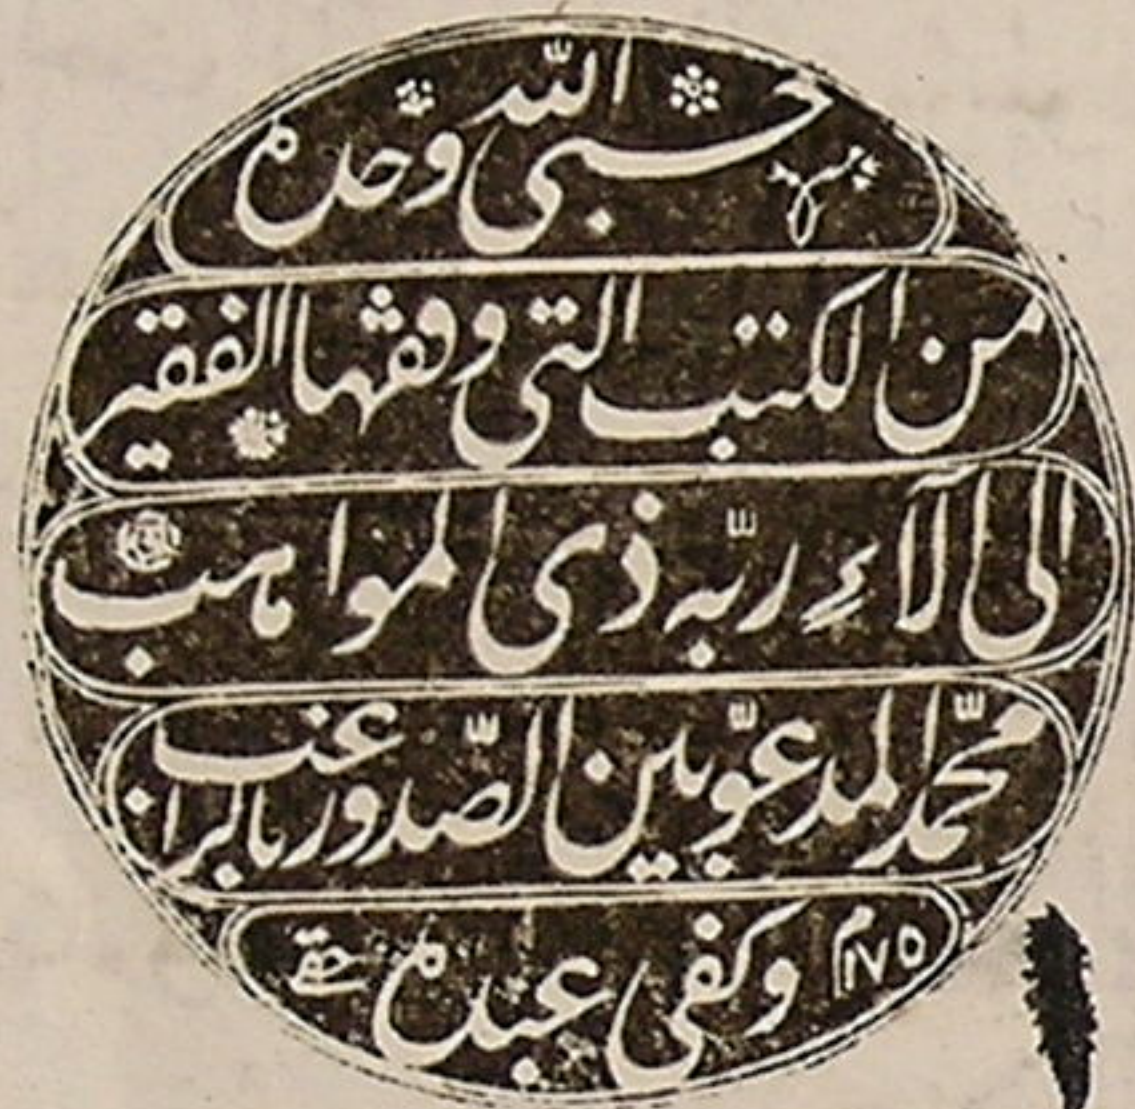 حسبي الله وحده
من الكتب التي وقفها الفقير
الى آلاء ربّه ذي المواهب
محمّد المدعوّ بين الصّدور بالراغب
وكفى عبده